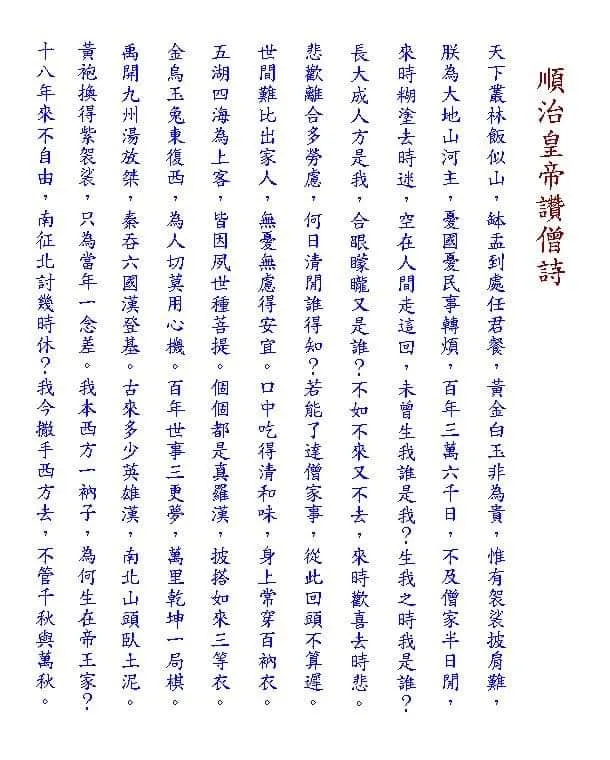 順治皇帝讚僧詩
天下叢林飯似山，缽盂到處任君餐，黃金白玉非為貴，惟有袈裟披肩難，
朕為大地山河主，憂國憂民事轉煩，百年三萬六千日，不及僧家半日閒，
來時糊塗去時迷，空在人間走這回，未曾生我誰是我？生我之時我是誰？
長大成人方是我，合眼矇矓又是誰？不如不來又不去，來時歡喜去時悲。
悲歡離合多勞慮，何日清閒誰得知？若能了達僧家事，從此回頭不算遲。
世間難比出家人，無憂無慮得安宜。口中吃得清和味，身上常穿百衲衣。
五湖四海為上客，皆因夙世種菩提。個個都是真羅漢，披搭如來三等衣。
金烏玉兔東復西，為人切莫用心機。百年世事三更夢，萬里乾坤一局棋。
禹開九州湯放桀，秦吞六國漢登基。古來多少英雄漢，南北山頭臥土泥。
黃袍換得紫袈裟，只為當年一念差。我本西方一衲子，為何生在帝王家？
十八年來不自由，南征北討幾時休？我今撇手西方去，不管千秋與萬秋。